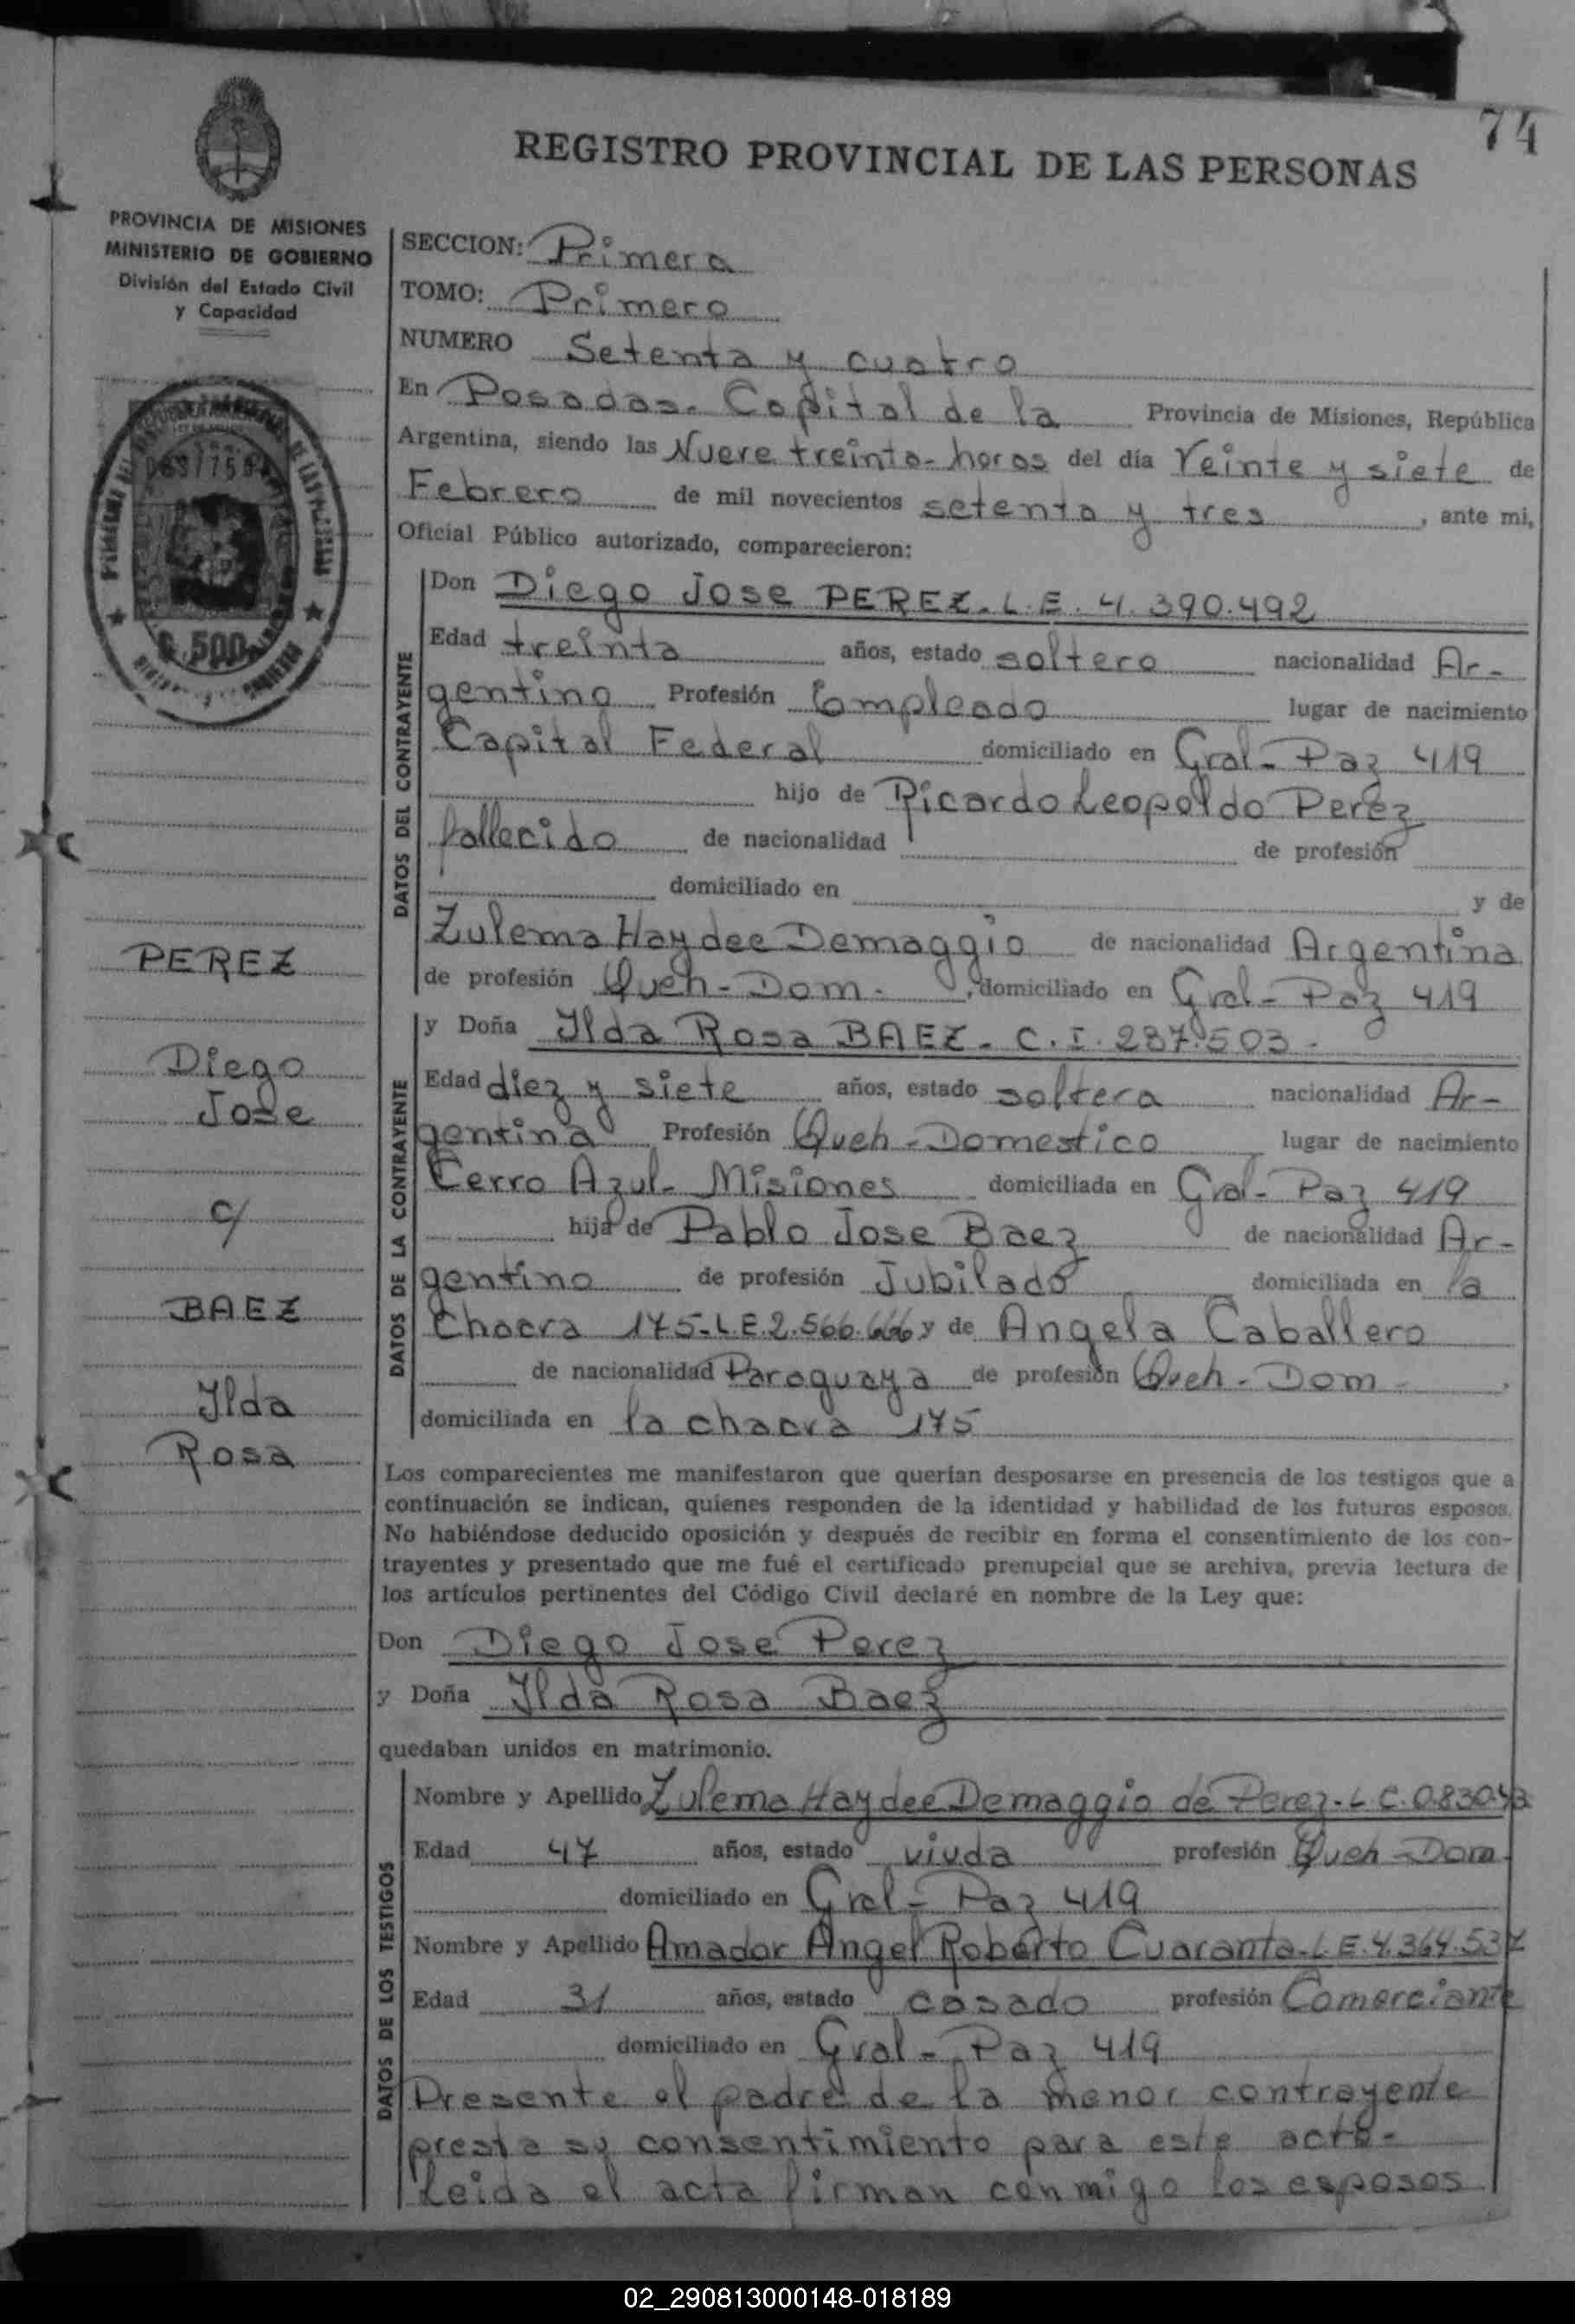 74
REGISTRO PROVINCIAL DE LAS PERSONAS
PROVINCIA DE MISIONES
MINISTERIO DE GOBIERNO
División del Estado Civil
y Capacidad
500
PEREZ
Diego
Jose
c/
BAEZ
Ilda
Rosa
SECCION: Primera
TOMO: Primero
NUMERO Setenta y cuatro
En Posadas- Capital de la Provincia de Misiones, República
Argentina, siendo las Nueve treinta- horas del día Veinte y siete de
Febrero de mil novecientos setenta y tres, ante mi,
Oficial Público autorizado, comparecieron:
DATOS DEL CONTRAYENTE
Don Diego Jose PEREZ- L.E. 4.390.492
Edad treinta años, estado soltero nacionalidad Ar-
gentino Profesión Empleado lugar de nacimiento
Capital Federal domiciliado en Gral- Paz 419
hijo de Ricardo Leopoldo Perez
fallecido de nacionalidad de profesión
domiciliado en y de
Zulema Haydee Demaggio de nacionalidad Argentina
de profesión Queh-Dom-, domiciliado en Gral- Paz 419
DATOS DE LA CONTRAYENTE
y Doña Ilda Rosa BAEZ- C.I. 237.503-
Edad diez y siete años, estado soltera nacionalidad Ar-
gentina Profesión Queh-Domestico lugar de nacimiento
Cerro Azul- Misiones domiciliada en Gral- Paz 419
hija de Pablo Jose Baez de nacionalidad Ar-
gentino de profesión Jubilado domiciliada en la
Chacra 175-L.E.2.566.666 y de Angela Caballero
de nacionalidad Paraguaya de profesión Queh-Dom-,
domiciliada en la chacra 175
Los comparecientes me manifestaron que querían desposarse en presencia de los testigos que a
continuación se indican, quienes responden de la identidad y habilidad de los futuros esposos.
No habiéndose deducido oposición y después de recibir en forma el consentimiento de los con-
trayentes y presentado que me fué el certificado prenupcial que se archiva, previa lectura de
los artículos pertinentes del Código Civil declaré en nombre de la Ley que:
Don Diego Jose Perez
y Doña Ilda Rosa Baez
quedaban unidos en matrimonio.
DATOS DE LOS TESTIGOS
Nombre y Apellido Zulema Haydee Demaggio de Perez- L.C.
Edad 47 años, estado viuda profesión Queh-Dom
domiciliado en Gral- Paz 419
Nombre y Apellido Amador Angel Roberto Cuaranta-L.E.4.364.537
Edad 31 años, estado casado profesión Comerciante
domiciliado en Gral- Paz 419
Presente el padre de la menor contrayente
presta su consentimiento para este acto-
Leida el acta firman conmigo los esposos
02_290813000148-018189